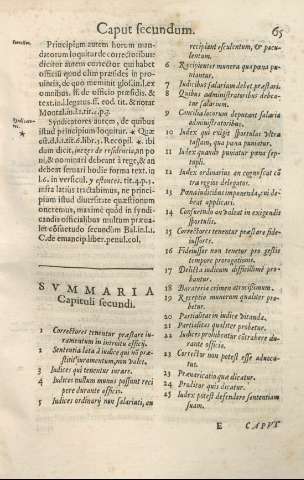 Caput secundum. 65
Principium autem horum man-
datorum loquitur de correctoribus
dicitur autem corrector qui habet
officiū quod olim præsides in pro-
uincijs, de quo meminit glos. in l. ex
omnibus. ff. de officio præsidis, &
text. in l. legatus. ff. eod. tit. & notat
Montal. in l. tit.
Syndicatores autem, de quibus
istud principium loquitur.
ui, & nominari debeant à rege, & an
debeat seruari hodie forma text. in
infra latius tractabimus, ne princi-
pium istud diuersitate quæstionum
oneremus, maximè quòd in syndi-
candis officialibus multum præua-
let cōsuetudo secundùm Bal. in l. 1.
C. de emancip. liber. penul. col.
SVMMARIA
Capituli secundi.
1 Correctores tenentur præstare iu-
ramentum in introitu officij.
2 Sententia lata à iudice qui nō præ-
stitit iuramentum, non valet.
3 Iudices qui tenentur iurare.
4 Iudices nullum munus possunt reci
pere durante officio.
5 Iudices ordinarij non salariati, an
recipiant esculentum, & pocu-
lentum.
6 Recipientes munera qua pœna pu-
niantur.
7 Iudicibus salarium debet præstari.
8 Quibus administratoribus debea-
tur salarium.
9 Concilia locorum deputant salaria
administratoribus.
10 Iudex qui exigit sportulas vltra
taxam, qua pœna puniatur.
11 Iudex quando puniatur pœna sep-
tupli.
12 Iudex ordinarius an cognoscat cō
tra regios delegatos.
13 Pœna iudici imponenda, cui de-
beat applicari.
14 Consuetudo an valeat in exigendis
sportulis.
15 Correctores tenentur præstare fide-
iussores.
16 Fideiussor non tenetur pro gestis
tempore prorogationis.
17 Delicta iudicum difficilimè pro-
bantur.
18 Barateria crimen atrocissimum.
19 Receptio munerum qualiter pro-
betur.
20 Partialitas in iudice vitanda.
21 Partialitas qualiter probetur.
22 Iudices prohibentur cōtrahere du-
rante officio.
23 Corrector non potest esse aduoca-
tus.
23 Præuaricatio quæ dicatur.
24 Proditor quis dicatur.
25 Iudex potest defendere sententiam
suam.
E CAPVT